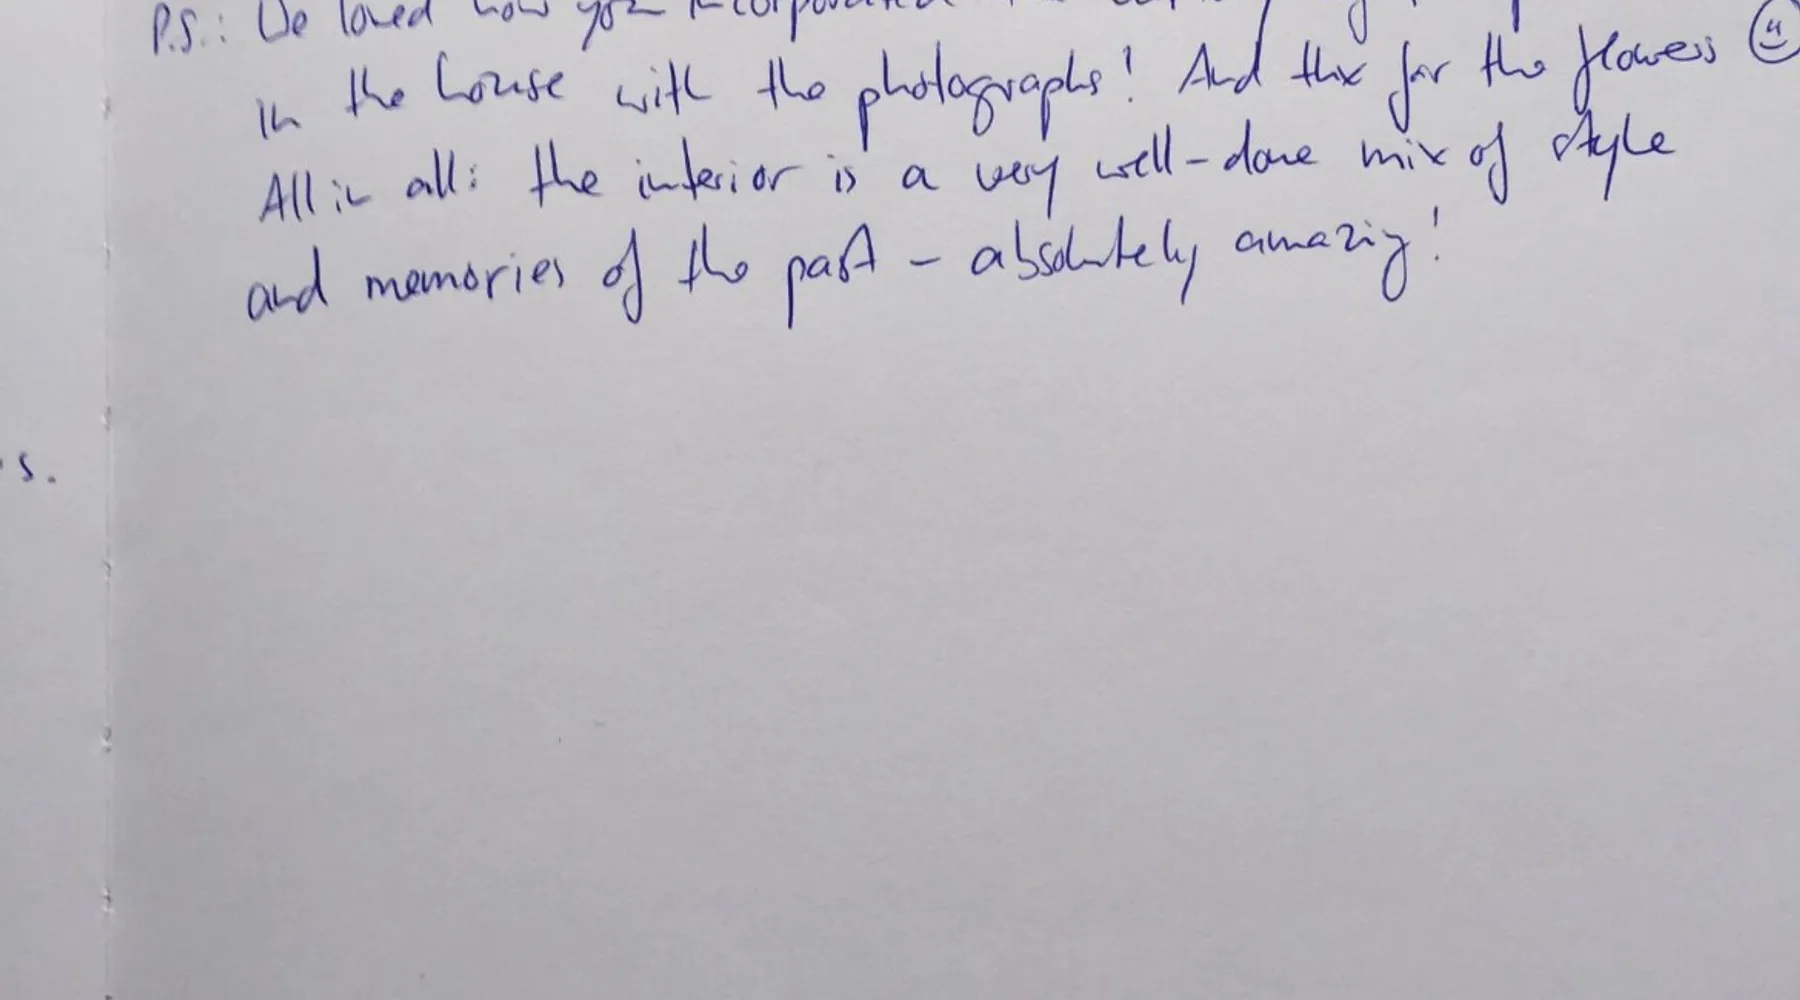 P.S.: We loved how you incorporated
in the house with the photographs! And thx for the flowers ☺
All in all: the interior is a very well-done mix of style
and memories of the past – absolutely amazing!
s.